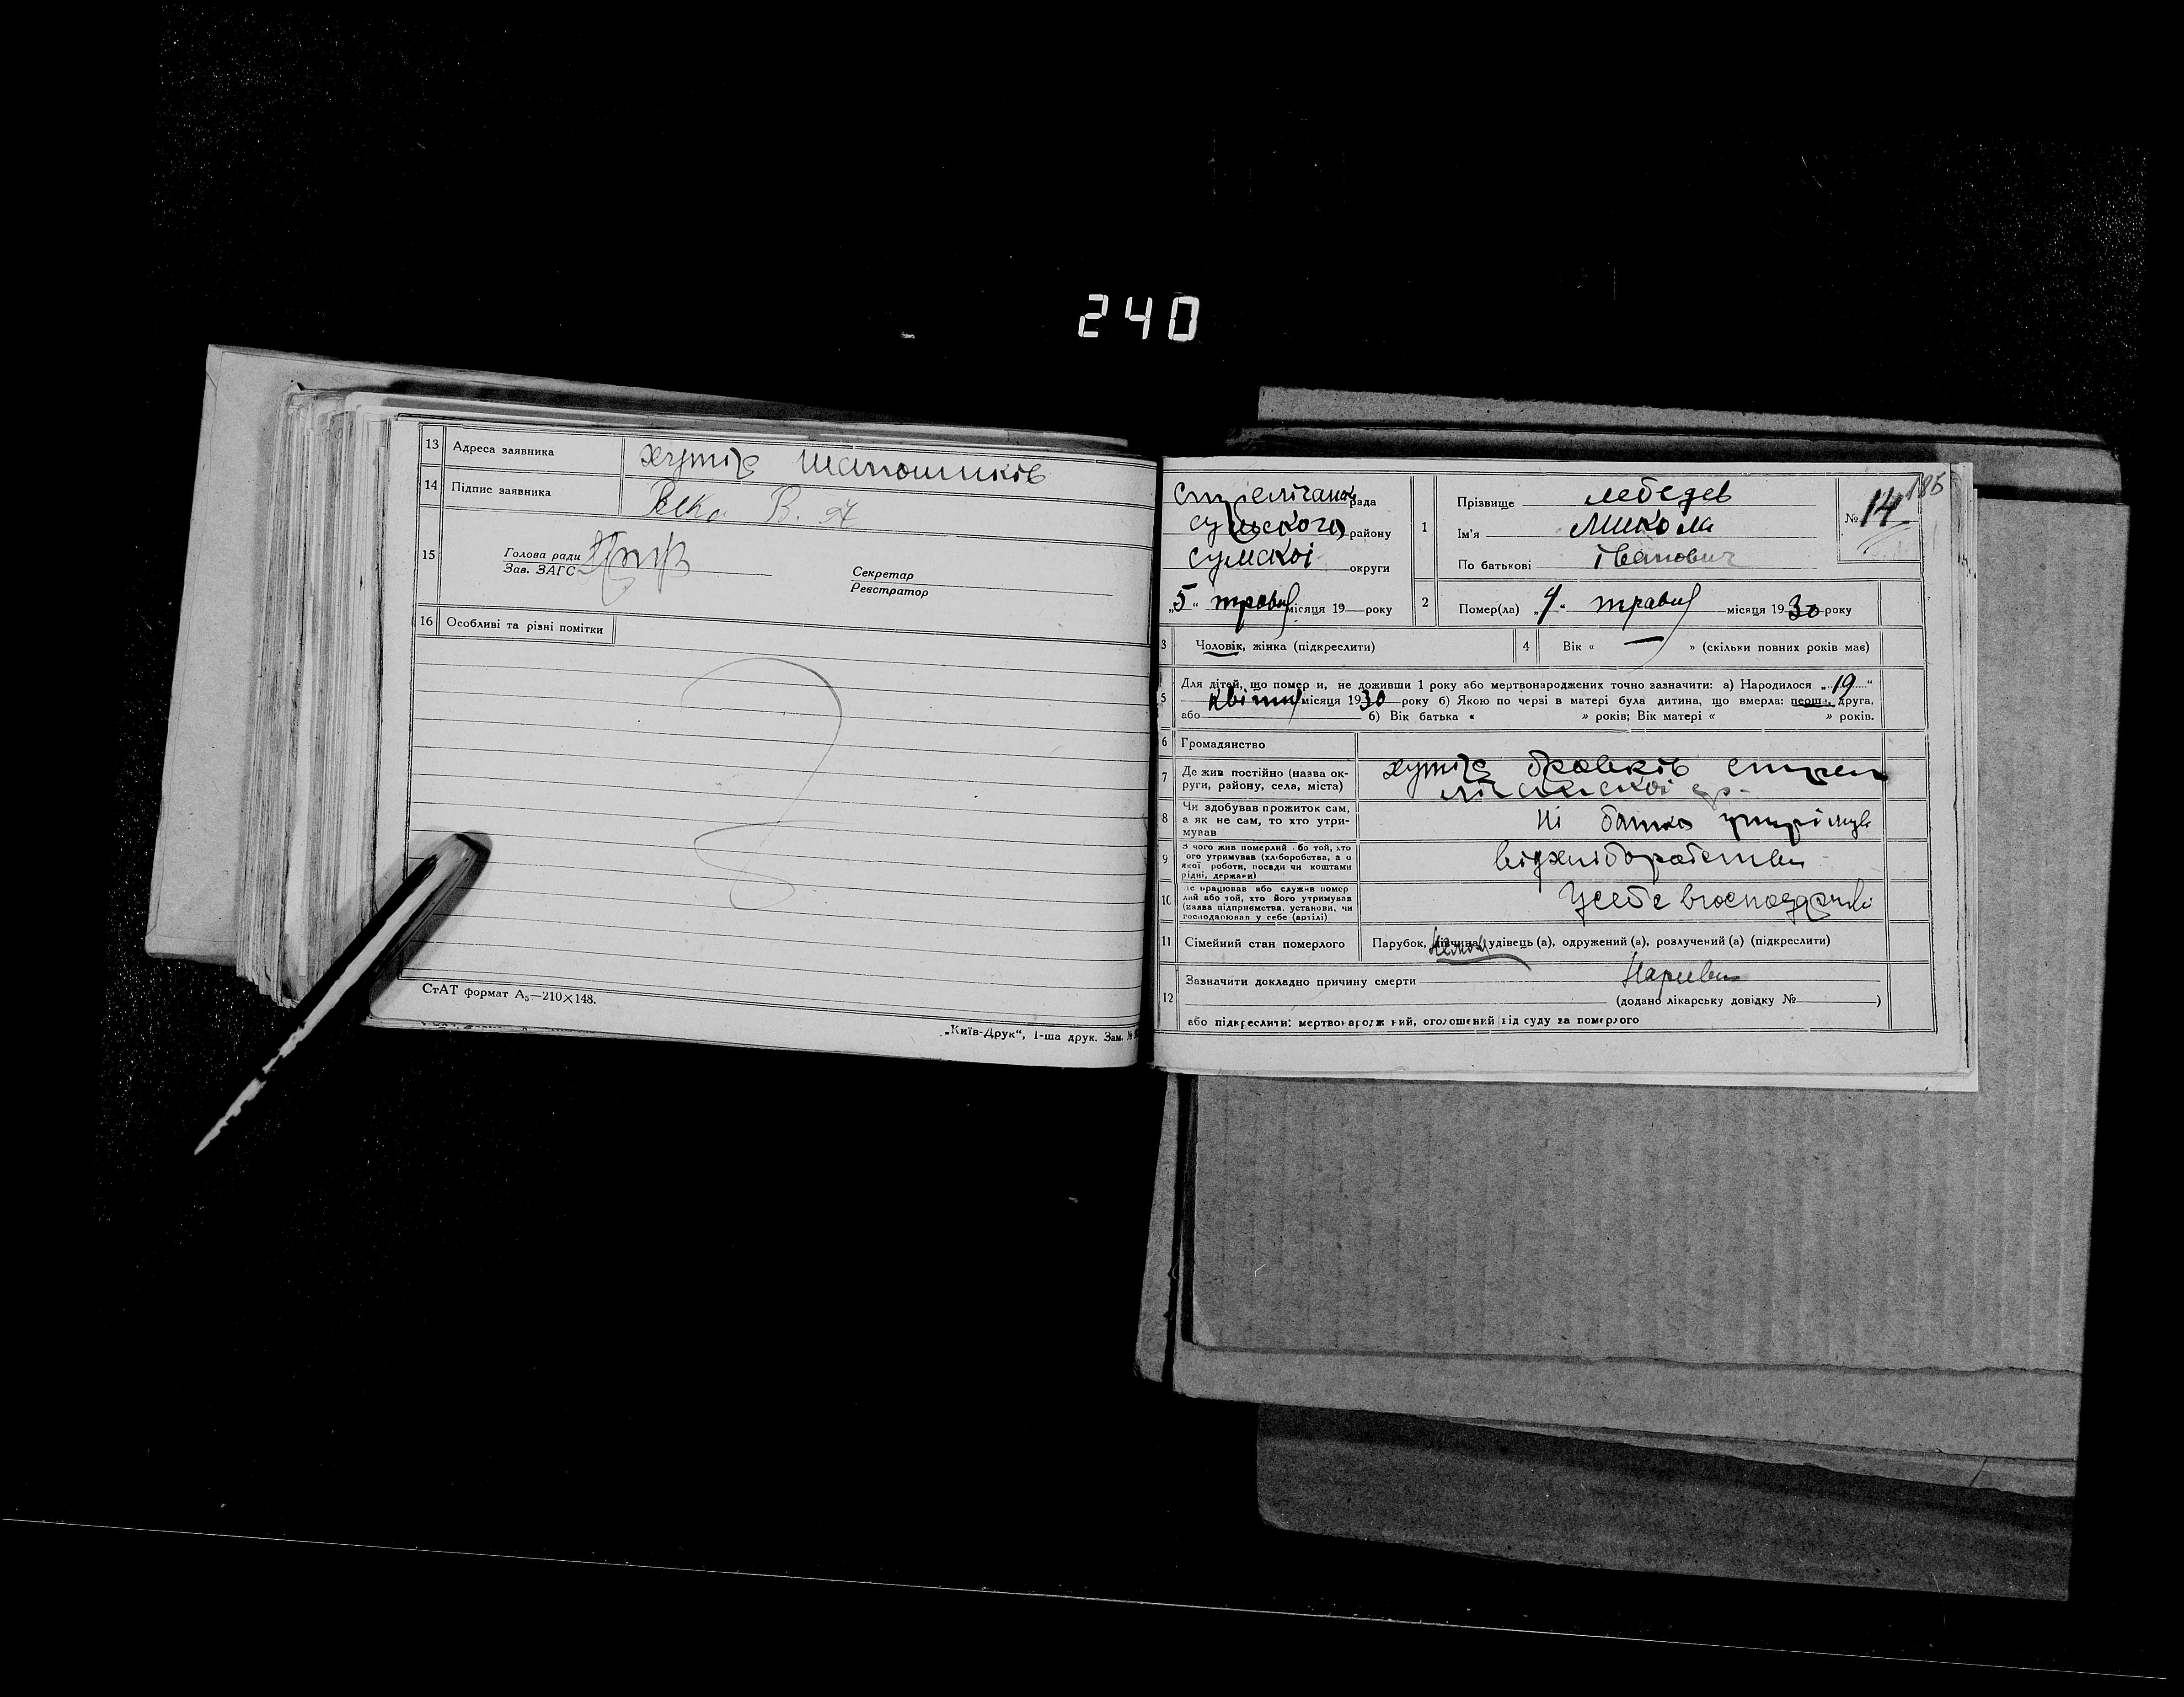 240
13 Адреса заявника хутір Шапошиків
14 Підпис заявника
15 Голова ради
Зав. ЗАГС
Секретар
Реєстратор
16 Особливі та різні помітки
СтАТ формат А₅—210×148.
„Київ-Друк“, 1-ша друк. Зам. №
рада
сумського району
сумскої округи
„5“ травня місяця 19 року
1 Прізвище лебедев
Ім'я Микола
По батькові іванович
№ 14
186
2 Помер(ла) „4“ травня місяця 1930 року
3 Чоловік, жінка (підкреслити)
4 Вік « — » (скільки повних років має)
5 Для дітей, що померли, не доживши 1 року або мертвонароджених точно зазначити: а) Народилося „19“
квітня місяця 1930 року б) Якою по черзі в матері була дитина, що вмерла: перша, друга,
або б) Вік батька « » років; Вік матері « » років.
6 Громадянство
7 Де жив постійно (назва ок-
руги, району, села, міста) хутір
8 Чи здобував прожиток сам,
а як не сам, то хто утри-
мував ні батько утримув
9 З чого жив померлий або той, хто
його утримував (хліборобства, а о
якої роботи, посади чи коштами
рідні, держави) відхліборобства
10 Де працював або служив помер
лий або той, хто його утримував
(назва підприємства, установи, чи
господарював у себе (артілі) усебе
11 Сімейний стан померлого Парубок, дівчина, удівець (а), одружений (а), розлучений (а) (підкреслити)
12 Зазначити докладно причину смерти
(додано лікарську довідку № )
або підкреслити: мертвонароджений, оголошений від суду за померлого